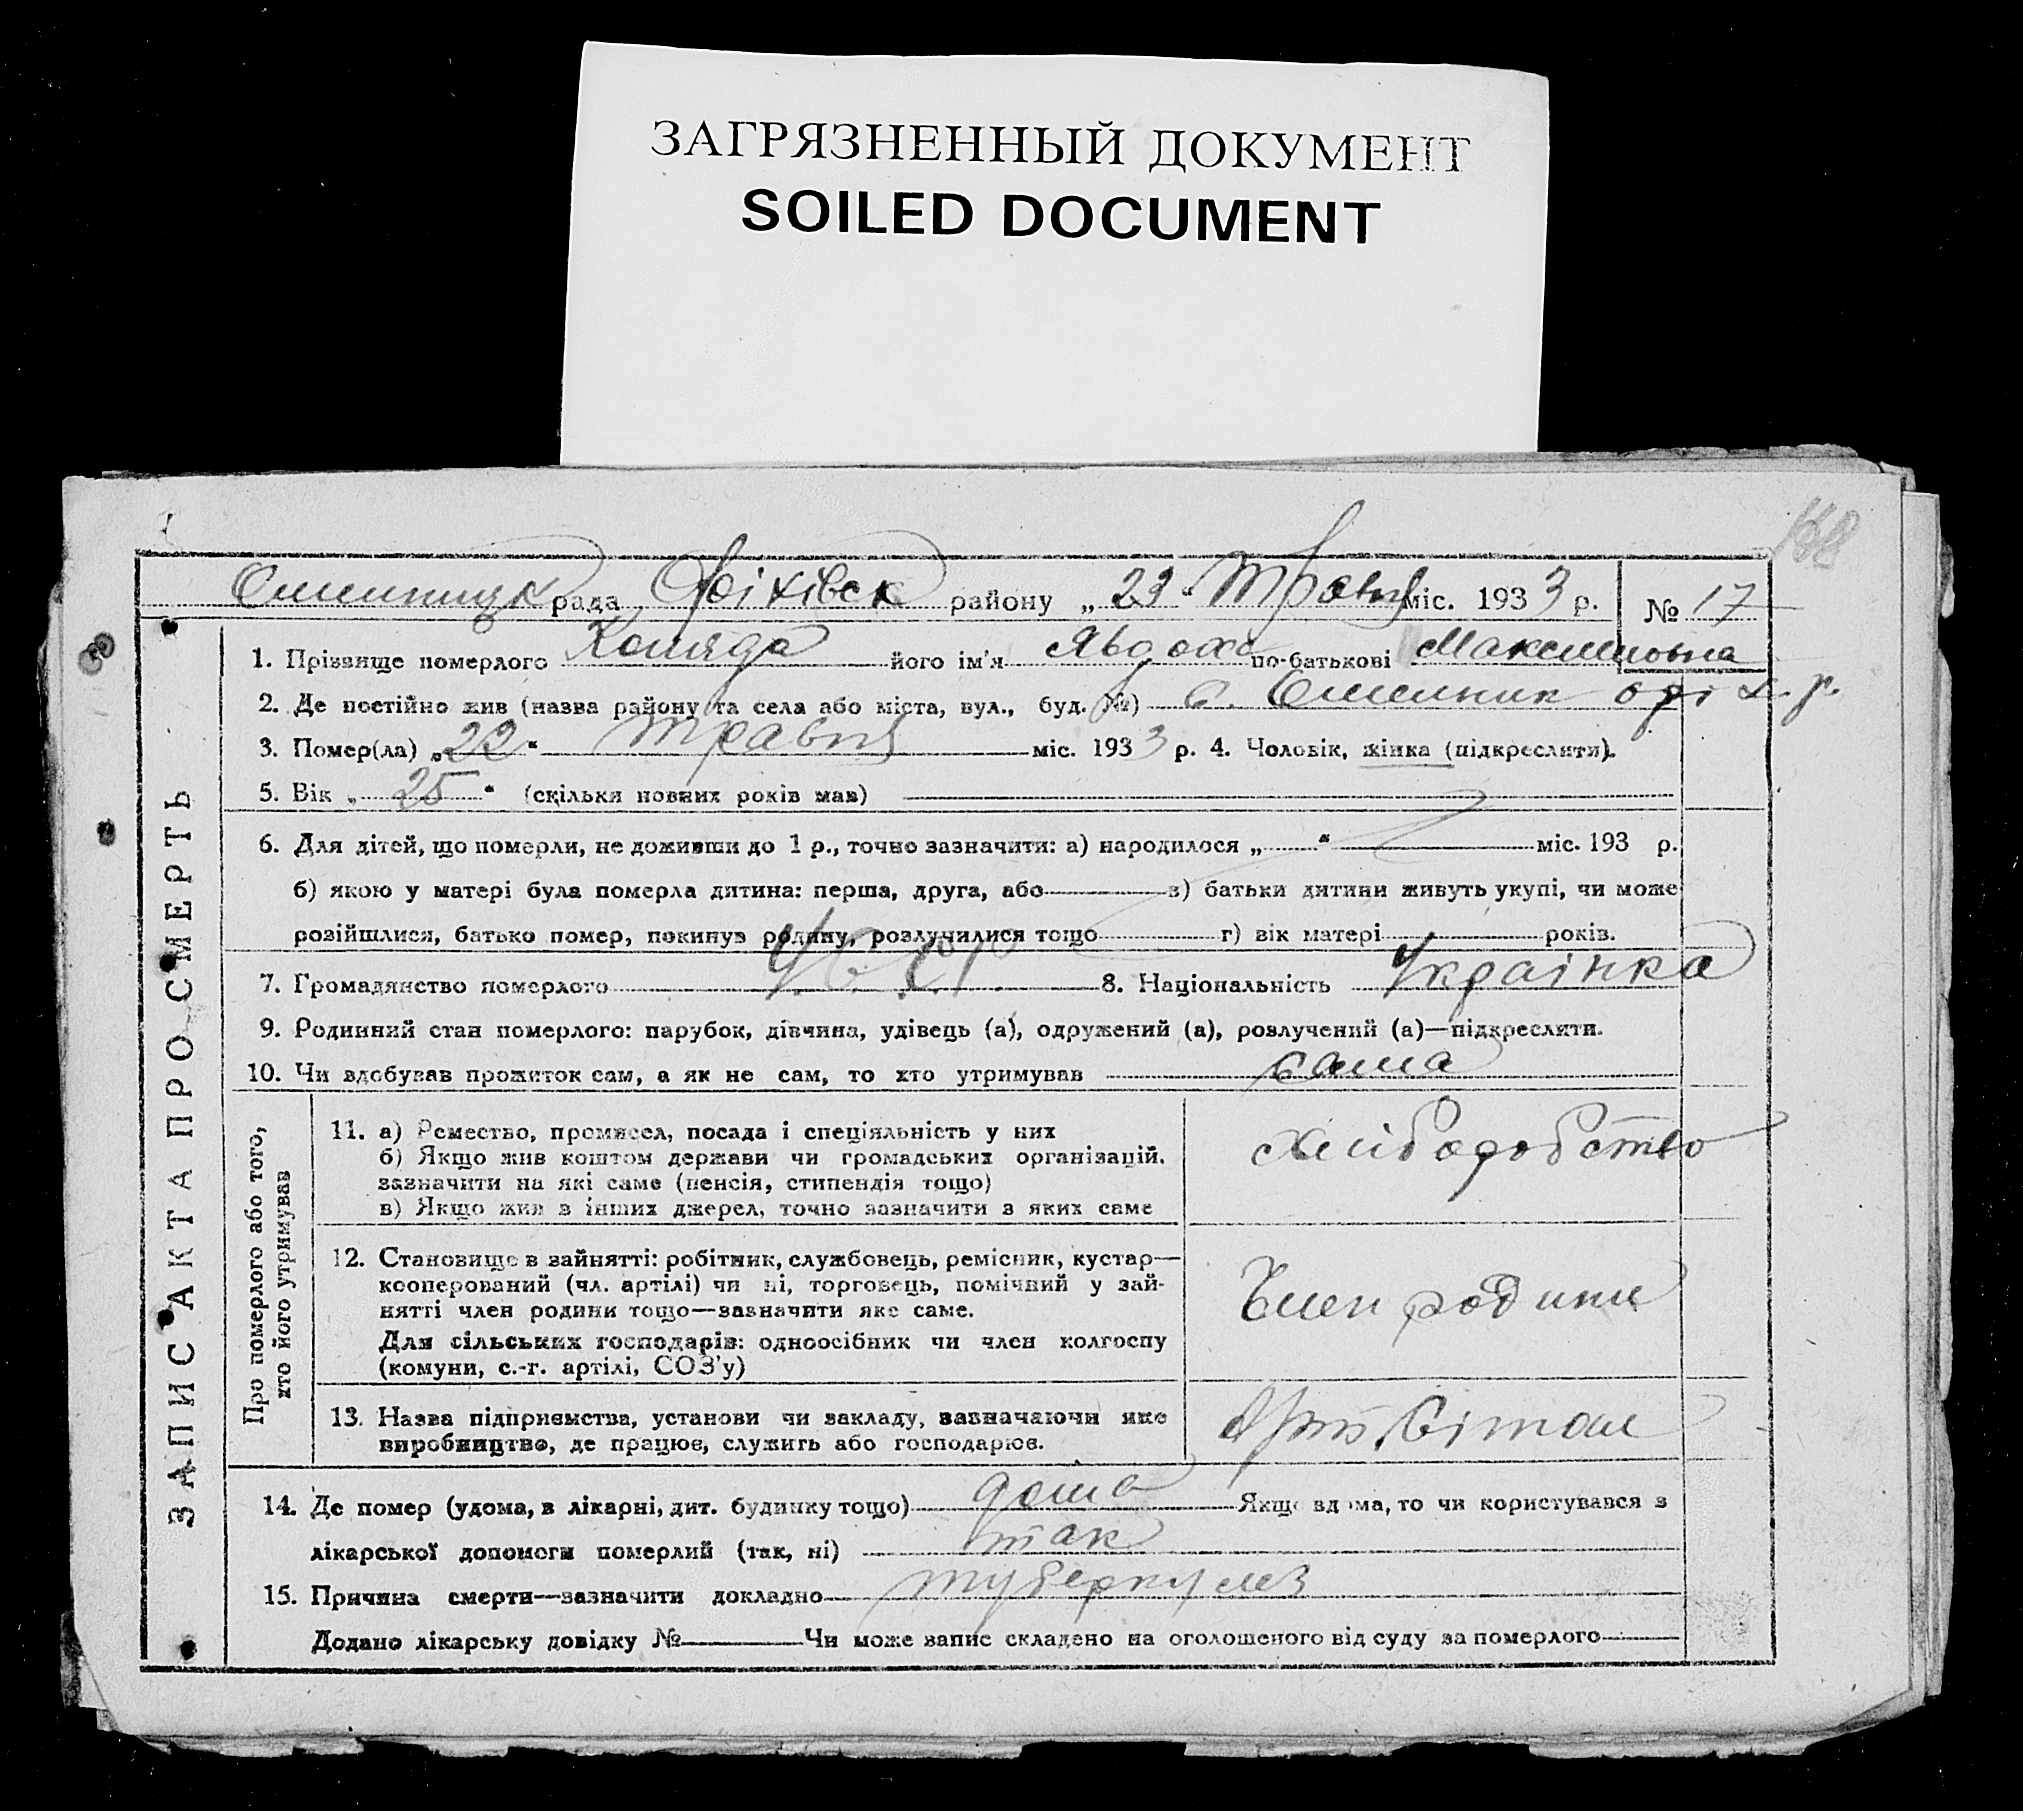 ЗАГРЯЗНЕННЫЙ ДОКУМЕНТ
SOILED DOCUMENT
168
Омельницк рада Оріхівск району „23“ Травня міс. 1933 р. № 17
ЗАПИС АКТА ПРО СМЕРТЬ
1. Прізвище померлого Коляда його ім'я Явдоха по-батькові Максимовна
2. Де постійно жив (назва району та села або міста, вул., буд. №) с. Омельник оріх. р.
3. Помер(ла) „22“ травня міс. 1933 р. 4. Чоловік, жінка (підкреслити).
5. Вік „25“ (скільки повних років мав)
6. Для дітей, що померли, не доживши до 1 р., точно зазначити: а) народилося „ “ міс. 193 р.
б) якою у матері була померла дитина: перша, друга, або в) батьки дитини живуть укупі, чи може
розійшлися, батько помер, покинув родину, розлучилися тощо г) вік матері років.
7. Громадянство померлого 8. Національність Українка
9. Родинний стан померлого: парубок, дівчина, удівець (а), одружений (а), розлучений (а)—підкреслити.
10. Чи здобував прожиток сам, а як не сам, то хто утримував сама
Про померлого або того,
хто його утримував
11. а) Ремество, промисел, посада і спеціяльність у них
б) Якщо жив коштом держави чи громадських організацій.
зазначити на які саме (пенсія, стипендія тощо)
в) Якщо жив з інших джерел, точно зазначити з яких саме
хліборобство
12. Становище в зайнятті: робітник, службовець, ремісник, кустар—
кооперований (чл. артілі) чи ні, торговець, помічний у зай-
нятті член родини тощо—зазначити яке саме.
Для сільських господарів: одноосібник чи член колгоспу
(комуни, с.-г. артілі, СОЗ'у)
Член родини
13. Назва підприємства, установи чи закладу, зазначаючи яке
виробництво, де працює, служить або господарює.
14. Де помер (удома, в лікарні, дит. будинку тощо) дома Якщо вдома, то чи користувався з
лікарської допомоги померлий (так, ні) так
15. Причина смерти—зазначити докладно туберкульоз
Додано лікарську довідку № Чи може запис складено на оголошеного від суду за померлого